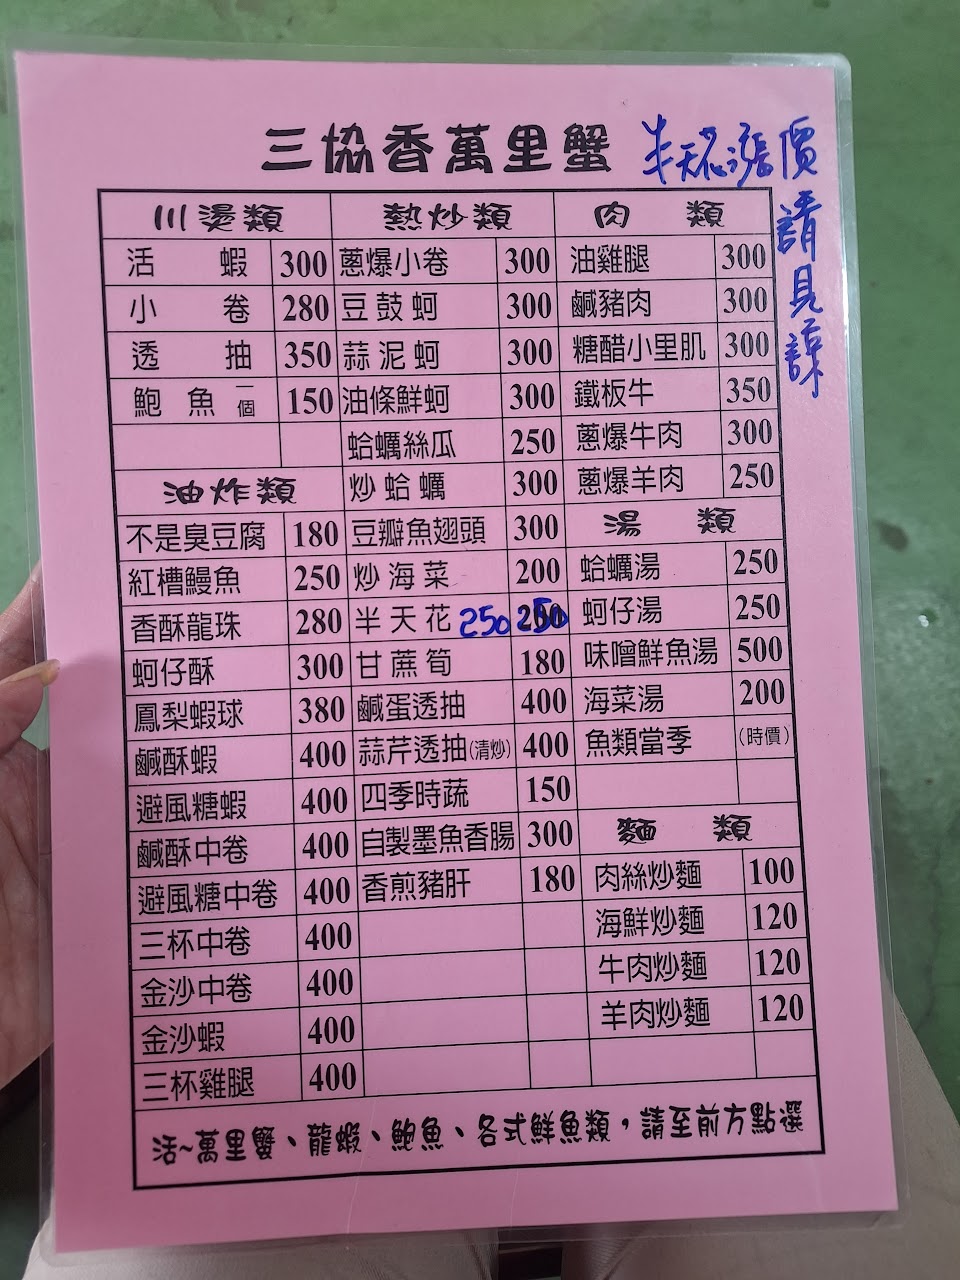 三協香萬里蟹
半天花漲價
請見諒
川燙類
活蝦 300
小卷 280
透抽 350
鮑魚一個 150
油炸類
不是臭豆腐 180
紅槽鰻魚 250
香酥龍珠 280
蚵仔酥 300
鳳梨蝦球 380
鹹酥蝦 400
避風糖蝦 400
鹹酥中卷 400
避風糖中卷 400
三杯中卷 400
金沙中卷 400
金沙蝦 400
三杯雞腿 400
熱炒類
蔥爆小卷 300
豆鼓蚵 300
蒜泥蚵 300
油條鮮蚵 300
蛤蠣絲瓜 250
炒蛤蠣 300
豆瓣魚翅頭 300
炒海菜 200
半天花 250 250
甘蔗筍 180
鹹蛋透抽 400
蒜芹透抽(清炒) 400
四季時蔬 150
自製墨魚香腸 300
香煎豬肝 180
肉類
油雞腿 300
鹹豬肉 300
糖醋小里肌 300
鐵板牛 350
蔥爆牛肉 300
蔥爆羊肉 250
湯類
蛤蠣湯 250
蚵仔湯 250
味噌鮮魚湯 500
海菜湯 200
魚類當季 (時價)
麵類
肉絲炒麵 100
海鮮炒麵 120
牛肉炒麵 120
羊肉炒麵 120
活~萬里蟹、龍蝦、鮑魚、各式鮮魚類，請至前方點選